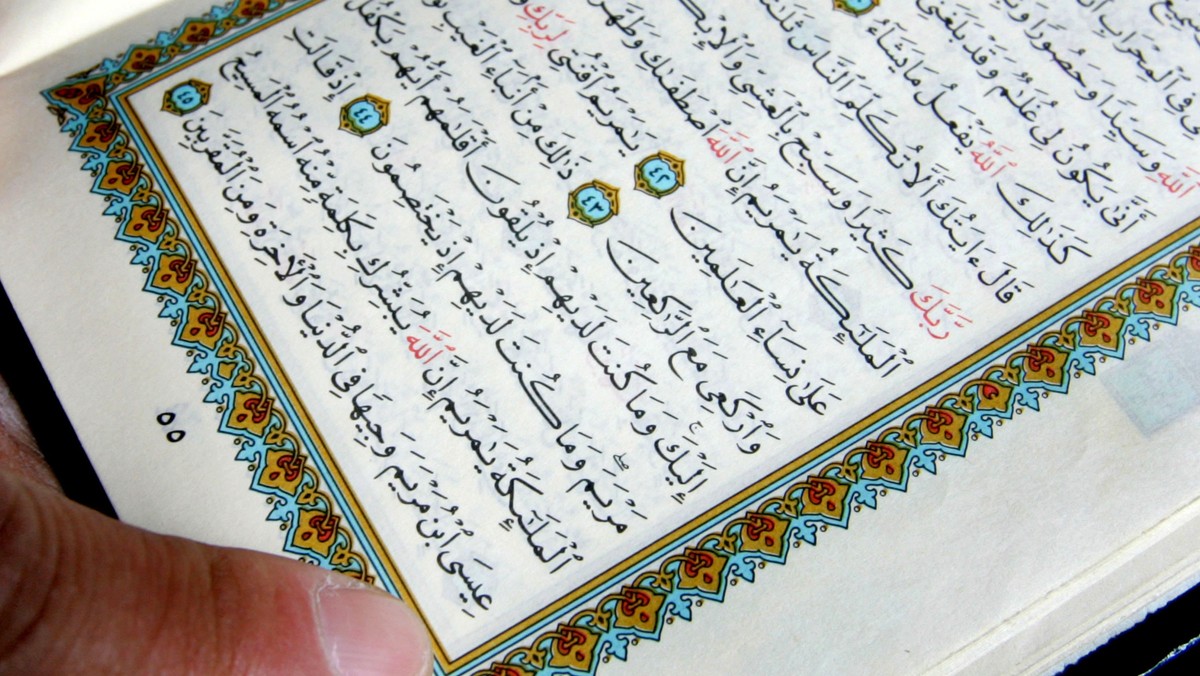 فِي ٱلْمِحْرَابِ
ٱللَّهِ وَسَيِّدًا وَحَصُورًا
أَنَّىٰ يَكُونُ لِي غُلَٰمٌ وَقَدْ بَلَغَنِيَ
كَذَٰلِكَ ٱللَّهُ يَفْعَلُ مَا يَشَآءُ
قَالَ ءَايَتُكَ أَلَّا تُكَلِّمَ ٱلنَّاسَ ثَلَٰثَةَ
رَّبَّكَ كَثِيرًا وَسَبِّحْ بِٱلْعَشِيِّ وَٱلْإِبْكَ
ٱلْمَلَٰٓئِكَةُ يَٰمَرْيَمُ إِنَّ ٱللَّهَ ٱصْطَفَىٰكِ وَطَهَّرَ
عَلَىٰ نِسَآءِ ٱلْعَٰلَمِينَ ٤٢ يَٰمَرْيَمُ ٱقْنُتِي لِرَبِّكِ
وَٱرْكَعِي مَعَ ٱلرَّٰكِعِينَ ٤٣ ذَٰلِكَ مِنْ أَنۢبَآءِ ٱلْغَيْبِ نُو
إِلَيْكَ ۚ وَمَا كُنتَ لَدَيْهِمْ إِذْ يُلْقُونَ أَقْلَٰمَهُمْ أَيُّهُمْ يَكْفُلُ
مَرْيَمَ ۖ وَمَا كُنتَ لَدَيْهِمْ إِذْ يَخْتَصِمُونَ ٤٤ إِذْ قَالَتِ
ٱلْمَلَٰٓئِكَةُ يَٰمَرْيَمُ إِنَّ ٱللَّهَ يُبَشِّرُكِ بِكَلِمَةٍ مِّنْهُ ٱسْمُهُ ٱلْمَسِيحُ
عِيسَى ٱبْنُ مَرْيَمَ وَجِيهًا فِي ٱلدُّنْيَا وَٱلْأَخِرَةِ وَمِنَ ٱلْمُقَرَّبِينَ ٤٥
٥٥